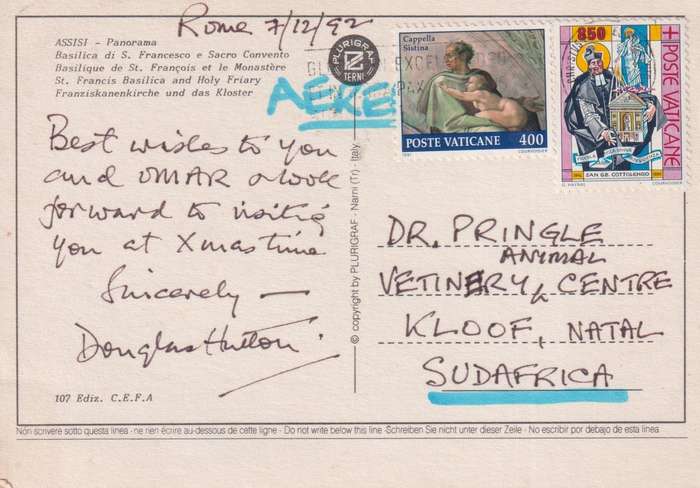 Rome 7/12/92
ASSISI - Panorama
Basilica di S. Francesco e Sacro Convento
Basilique de St. François et le Monastère
St. Francis Basilica and Holy Friary
Franziskanenkirche und das Kloster
PLURIGRAF
TERNI
Cappella
Sistina
POSTE VATICANE 400
1991
COURVOISIER
850
POSTE VATICANE
SAN G.B. COTTOLENGO
COURVOISIER
Best wishes to you
and OMAR & look
forward to visiting
you at Xmastime
Sincerely —
Douglas Hutton
© copyright by PLURIGRAF - Narni (Tr) - Italy
DR. PRINGLE
ANIMAL
VETINERY & CENTRE
KLOOF, NATAL
SUDAFRICA
107 Ediz. C.E.F.A
Non scrivere sotto questa linea - ne rien écrire au-dessous de cette ligne - Do not write below this line - Schreiben Sie nicht unter dieser Zeile - No escribir por debajo de esta linea